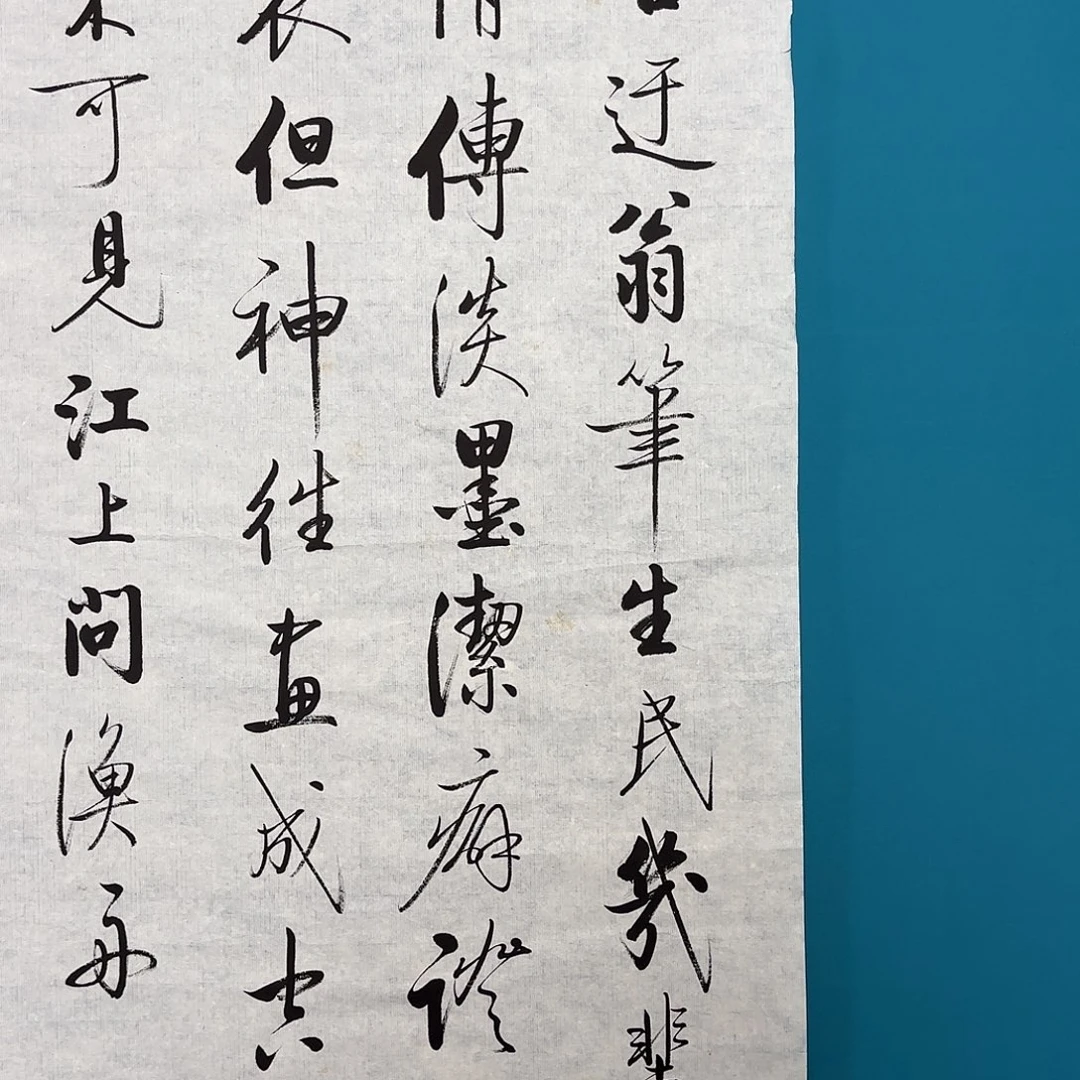 迂翁筆生民幾
傳淡墨潔癖證
但神往畫成
可見江上問漁舟